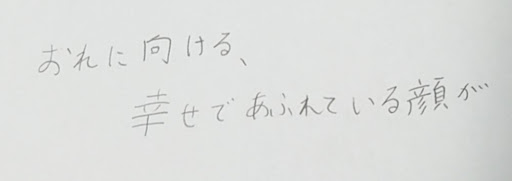 おれに向ける、
幸せであふれている顔が